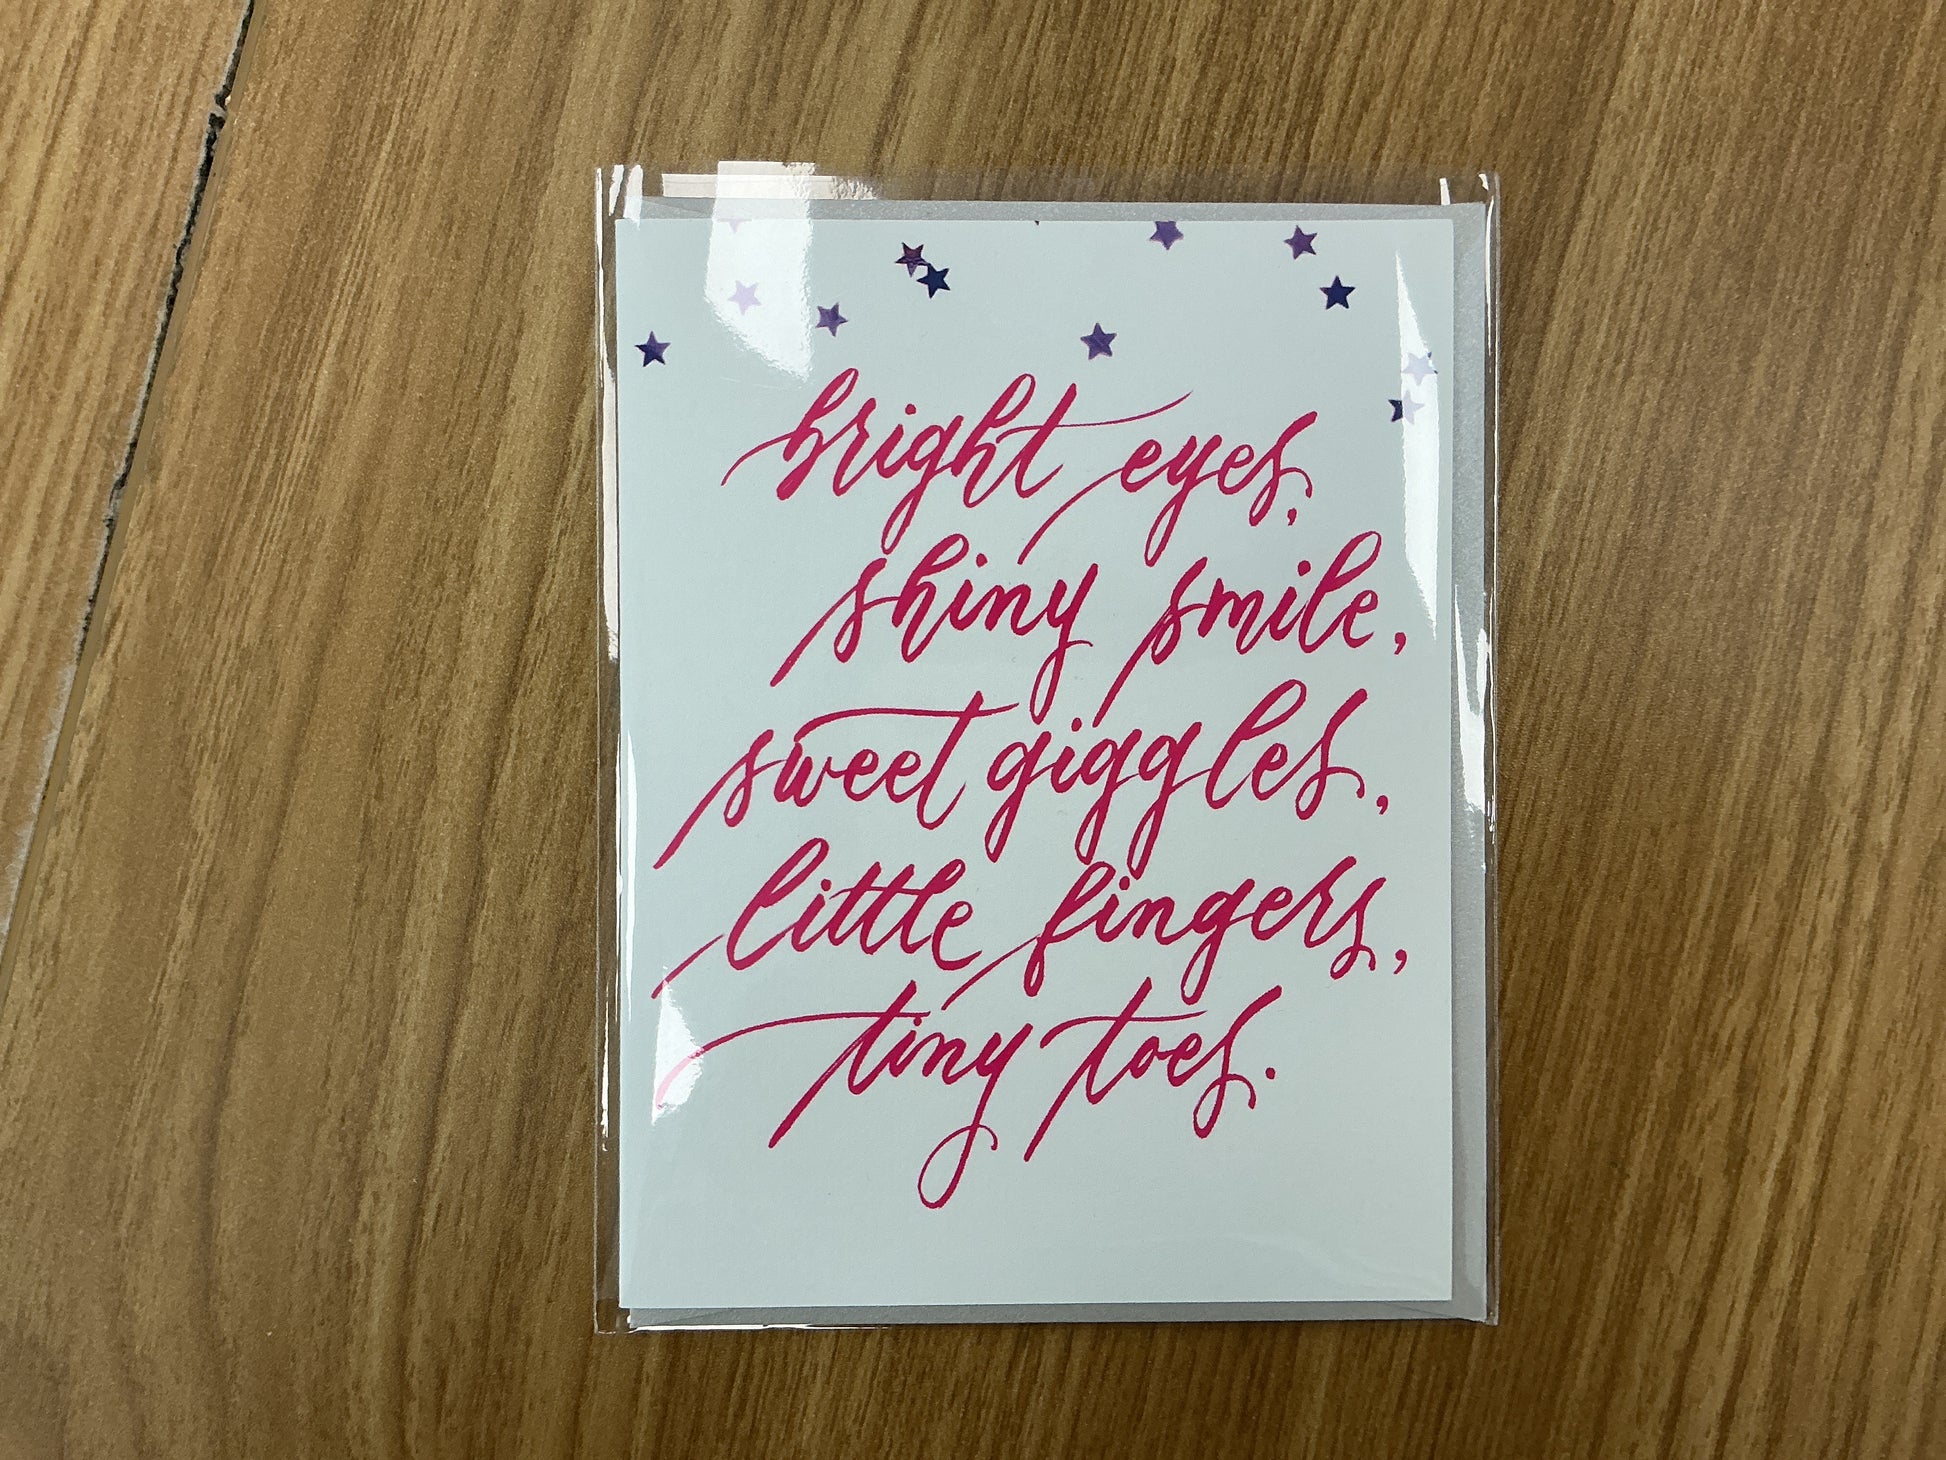 bright eyes,
shiny smile,
sweet giggles,
little fingers,
tiny toes.